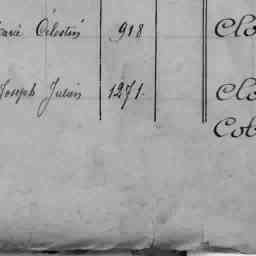 Célestin 918 Clo
Joseph Julien 1271. Clo
Cot